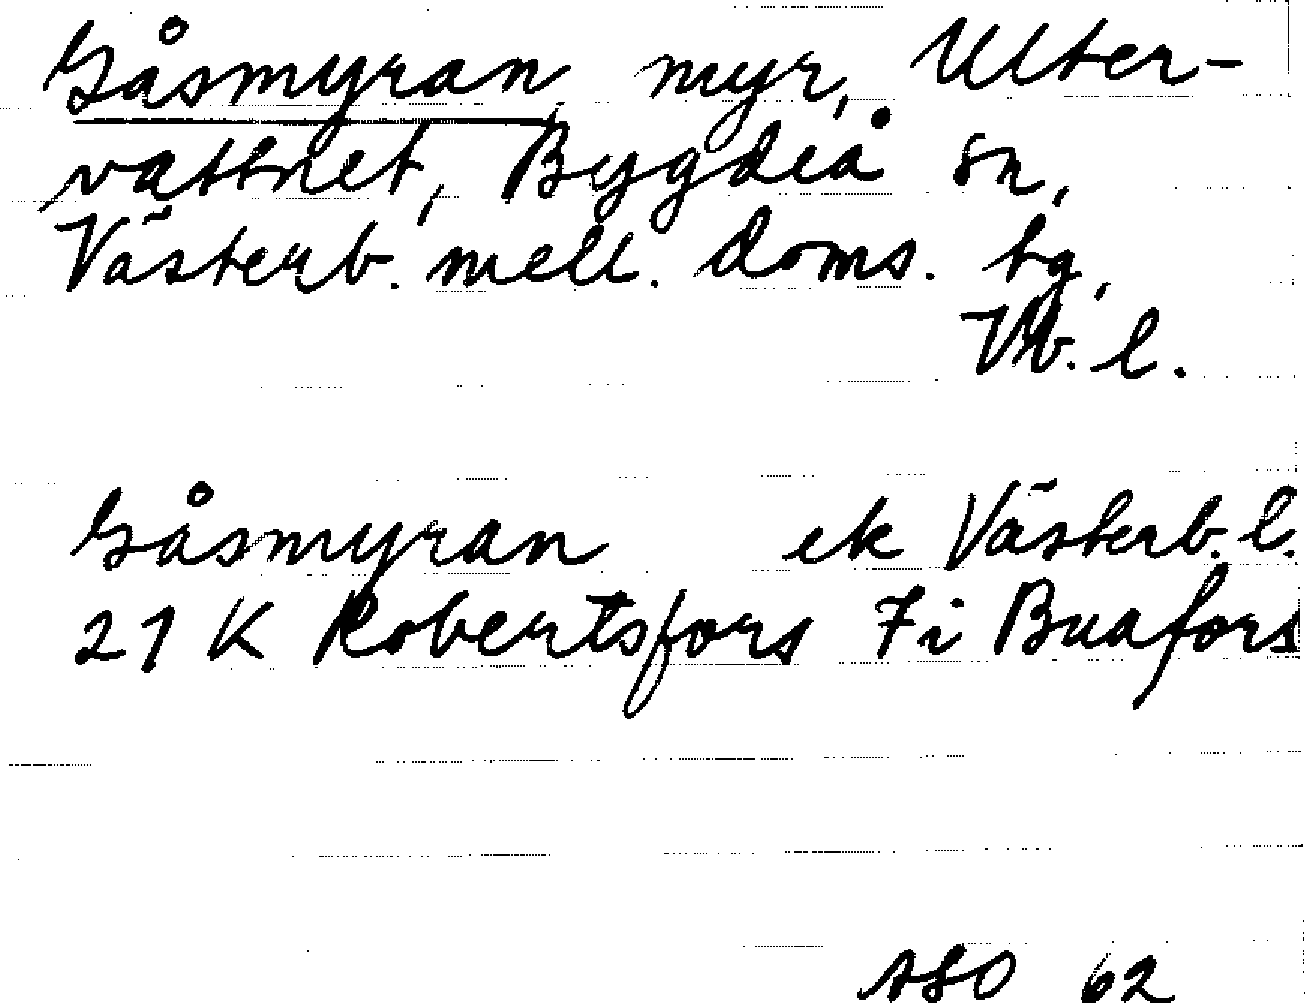 Gåsmyran myr, Ulter-
vattnet, Bygdeå sn,
Västerb. mell. doms. tg,
Vb. l.
Gåsmyran ek Västerb. l.
21 K Robertsfors 7 i Buafors
ASO 62